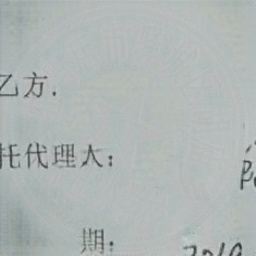 乙方.
托代理人:
期: 2019